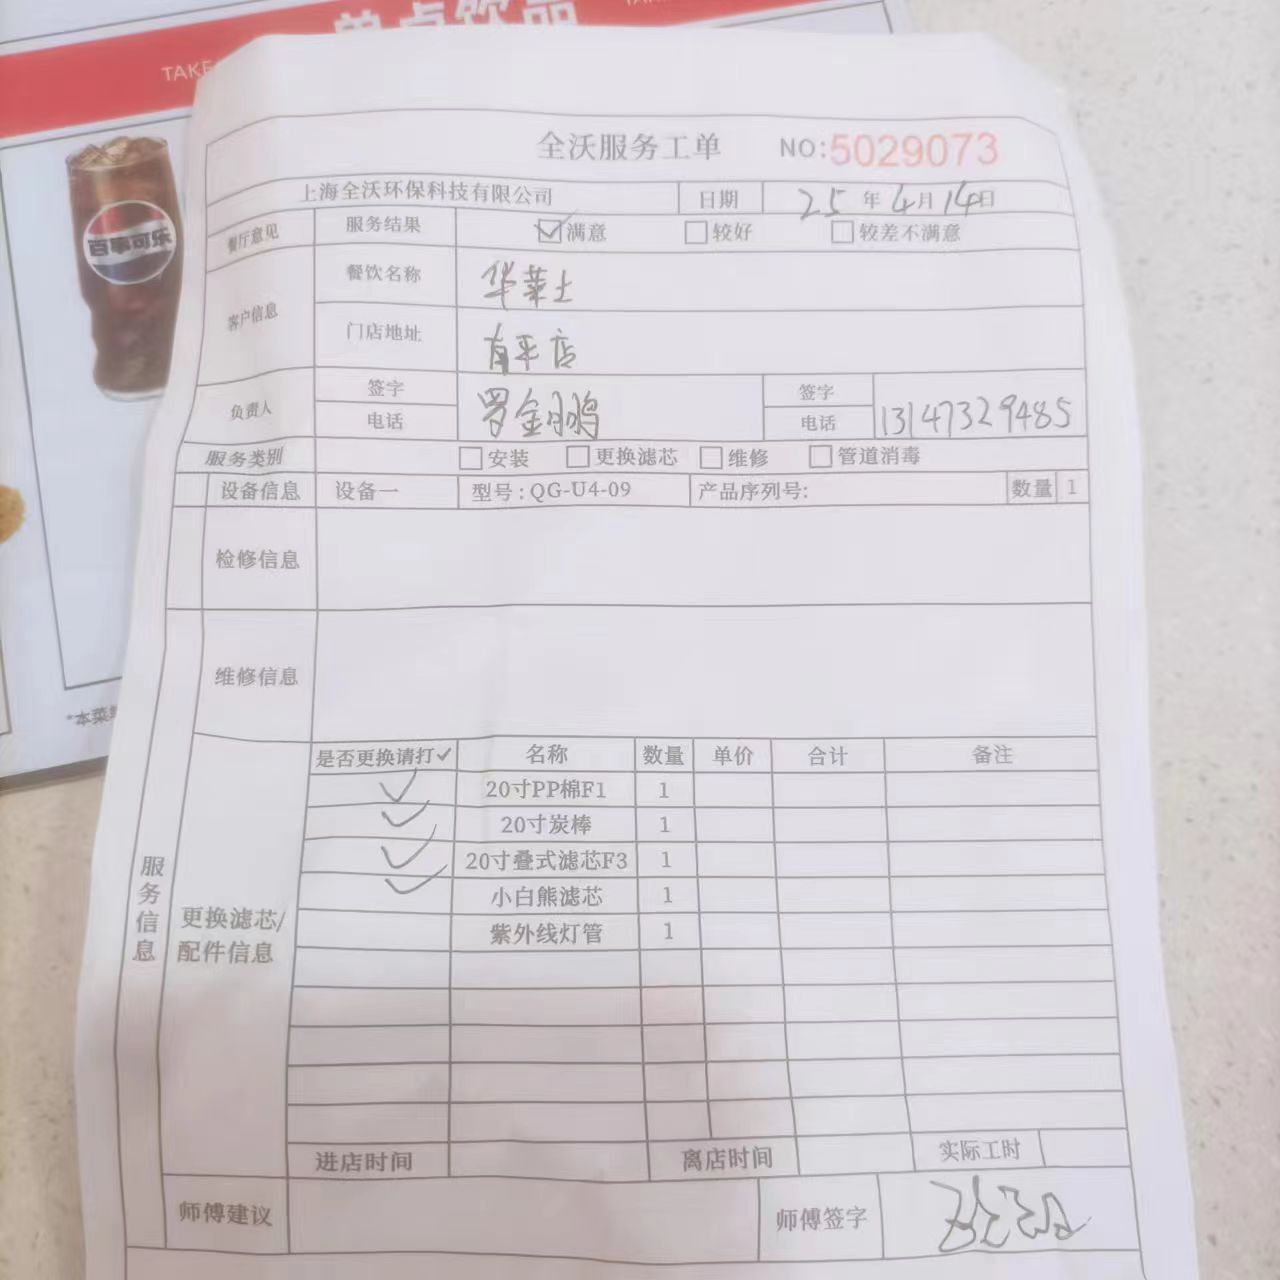 单点饮品
TAKE
百事可乐
*本菜单
全沃服务工单 NO:5029073
上海全沃环保科技有限公司 日期 25年4月14日
餐厅意见 服务结果 ☑满意 □较好 □较差不满意
客户信息 餐饮名称 华莱士
门店地址
负责人 签字 罗金鹏 签字
电话 电话 13147329485
服务类别 □安装 □更换滤芯 □维修 □管道消毒
设备信息 设备一 型号:QG-U4-09 产品序列号: 数量 1
检修信息
维修信息
服务信息
更换滤芯/
配件信息
是否更换请打✓ 名称 数量 单价 合计 备注
✓ 20寸PP棉F1 1
✓ 20寸炭棒 1
✓ 20寸叠式滤芯F3 1
✓ 小白熊滤芯 1
紫外线灯管 1
进店时间 离店时间 实际工时
师傅建议 师傅签字